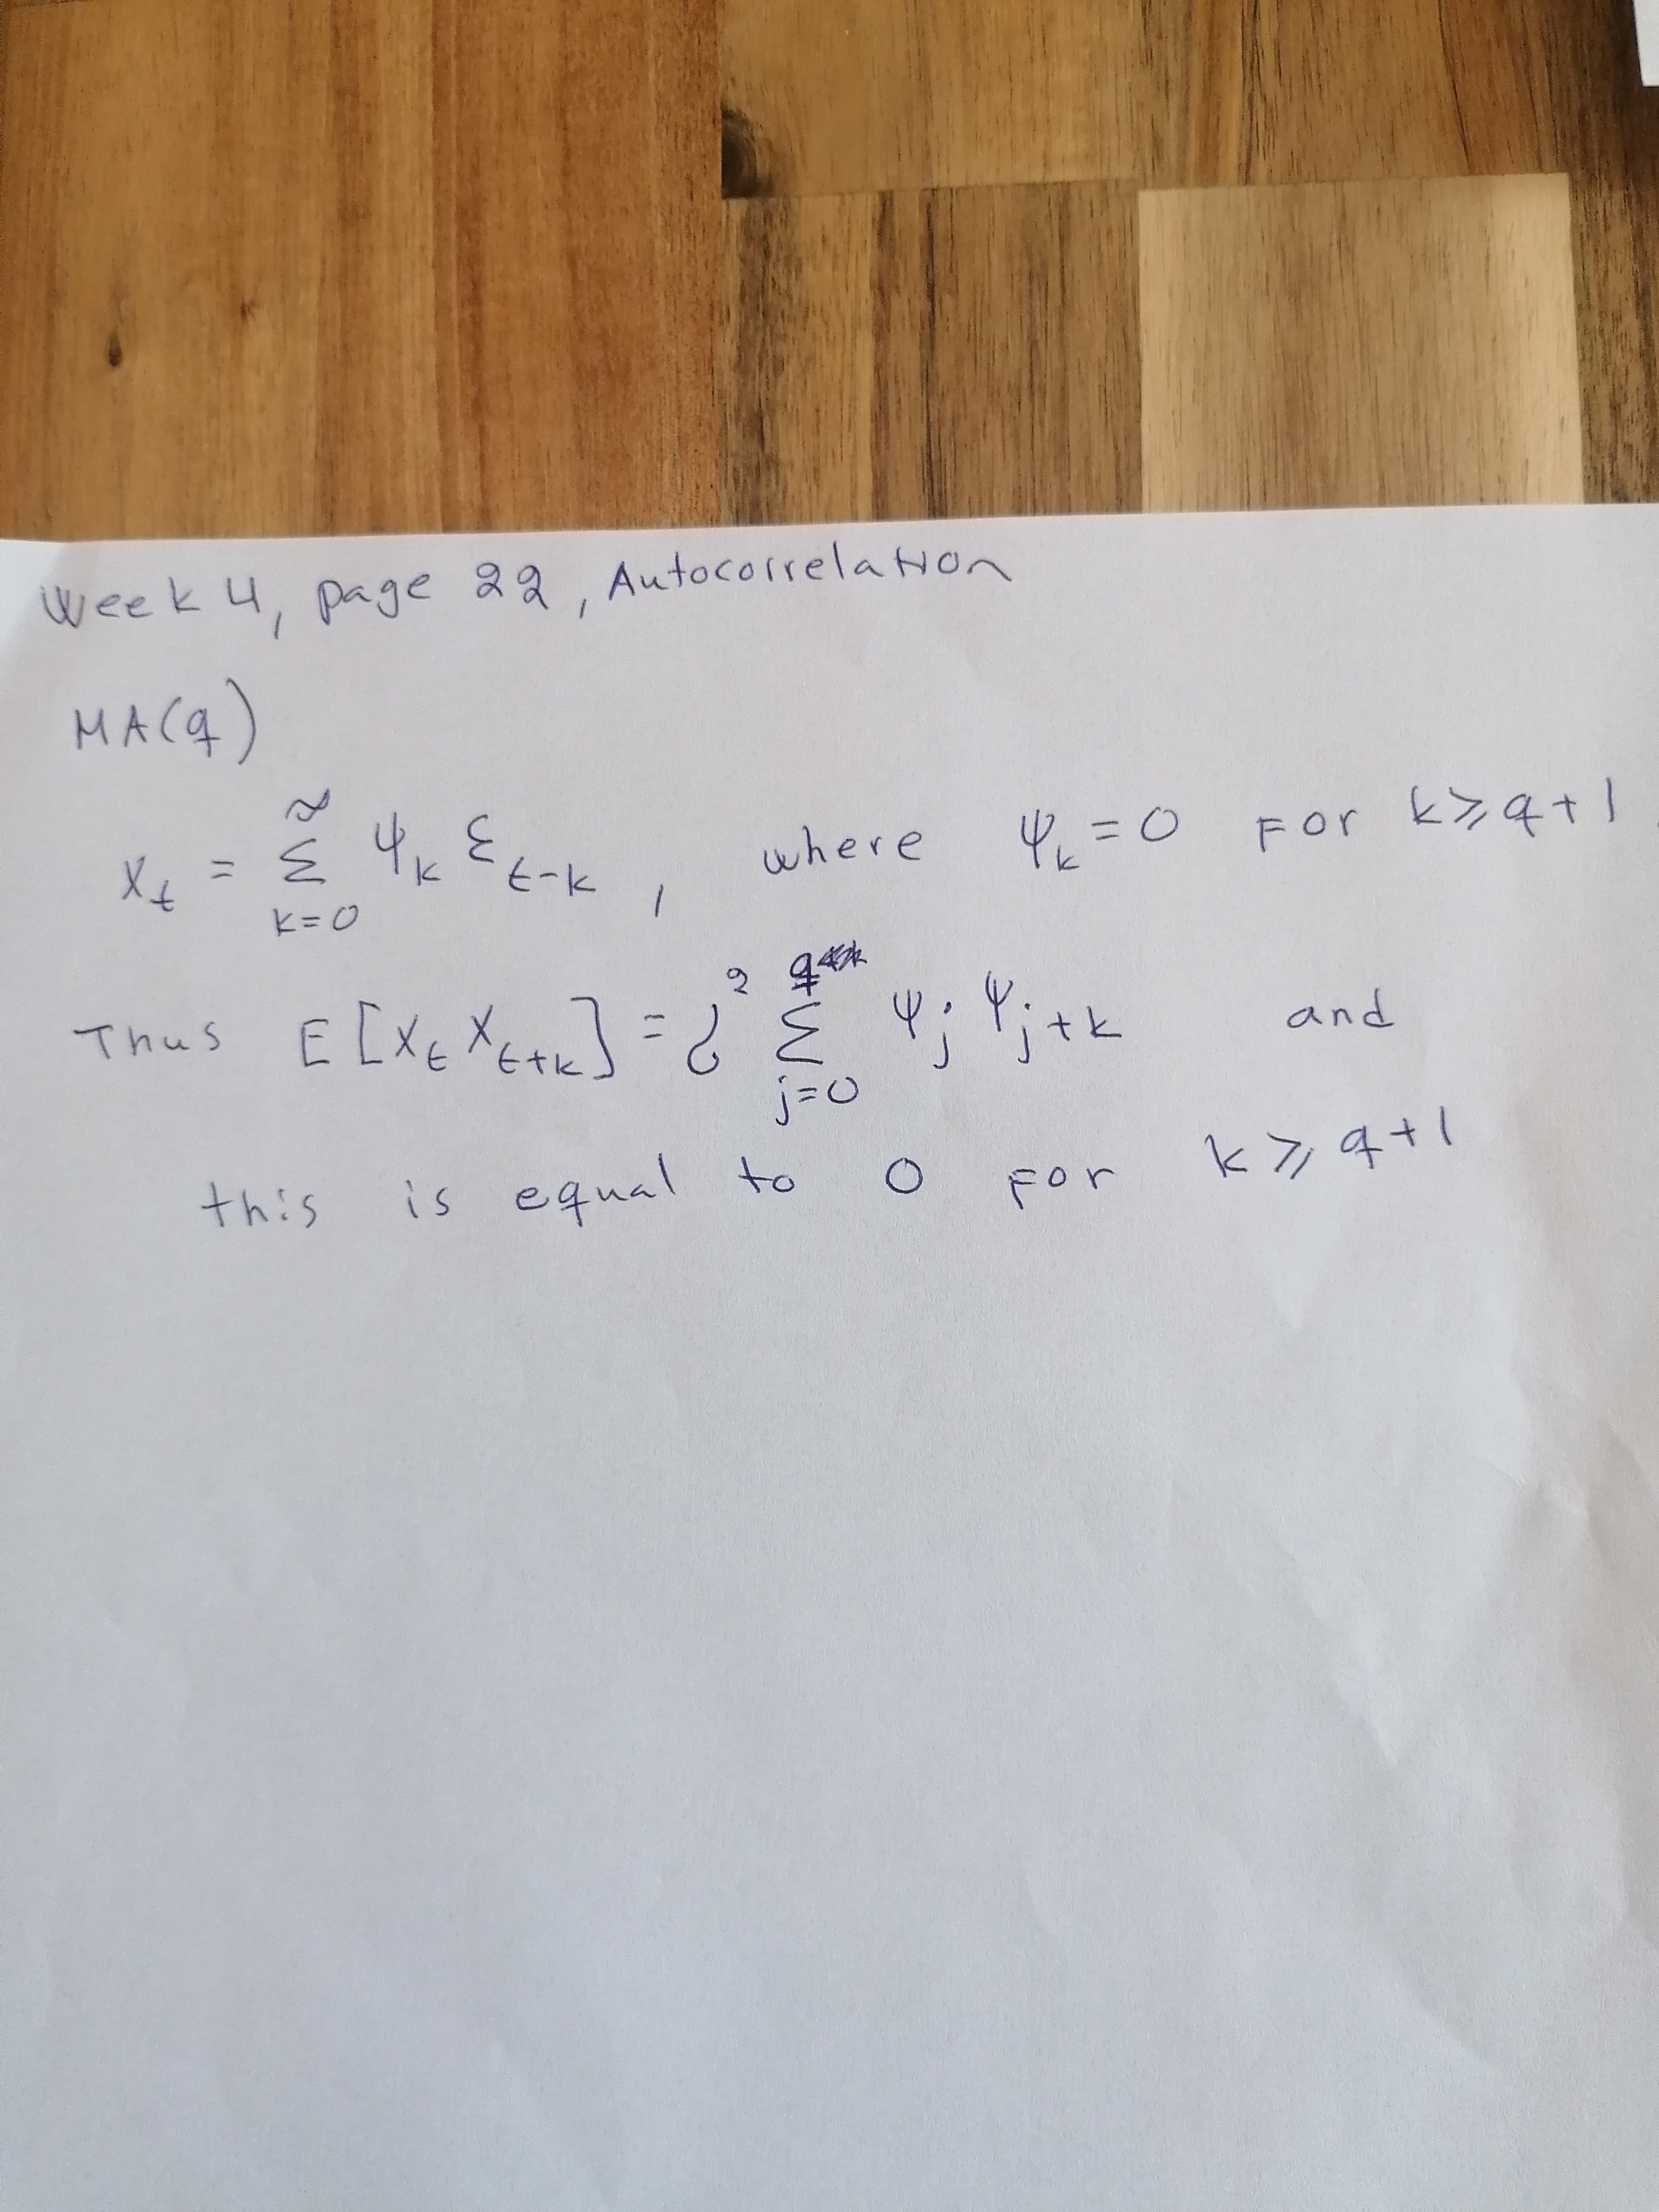 Week 4, page 22, Autocorrelation
MA(q)
X_t = Σ_{k=0}^{∞} ψ_k ε_{t-k}, where ψ_k = 0 for k ≥ q+1.
Thus E[X_t X_{t+k}] = σ² Σ_{j=0}^{q} ψ_j ψ_{j+k} and
this is equal to 0 for k ≥ q+1